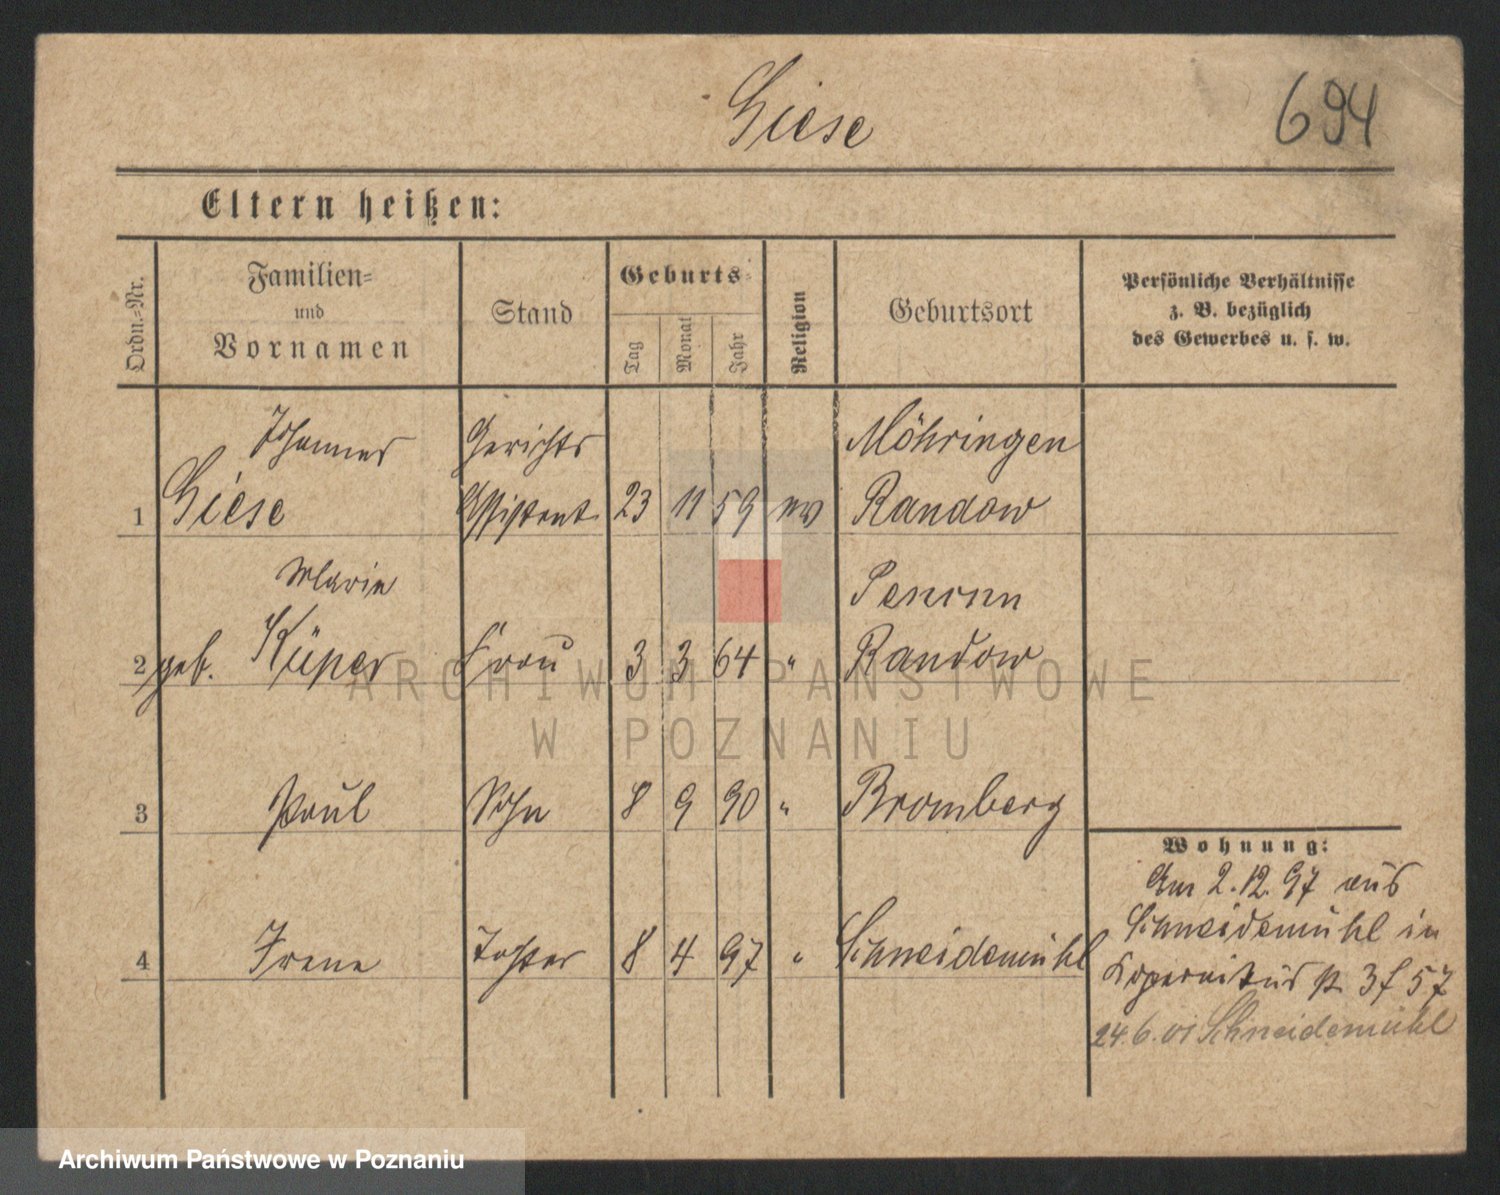 Giese
694
Eltern heißen:
Ordn.-Nr.
Familien-
und
Vornamen
Stand
Geburts-
Tag
Monat
Jahr
Religion
Geburtsort
Persönliche Verhältnisse
z. B. bezüglich
des Gewerbes u. s. w.
Johannes Gerichts Möhringen
1 Giese Assistent 23 11 59 ev Randow
Marie
2 geb. Küper Frau 3 3 64 " Randow
3 Paul Sohn 8 9 90 " Bromberg
4 Irene Tochter 8 4 97 " Schneidemühl
Wohnung:
Am 2.12.97 aus
Schneidemühl in
Kopernikus st. 57
24.6.01 Schneidemühl
ARCHIWUM PAŃSTWOWE
W POZNANIU
Archiwum Państwowe w Poznaniu